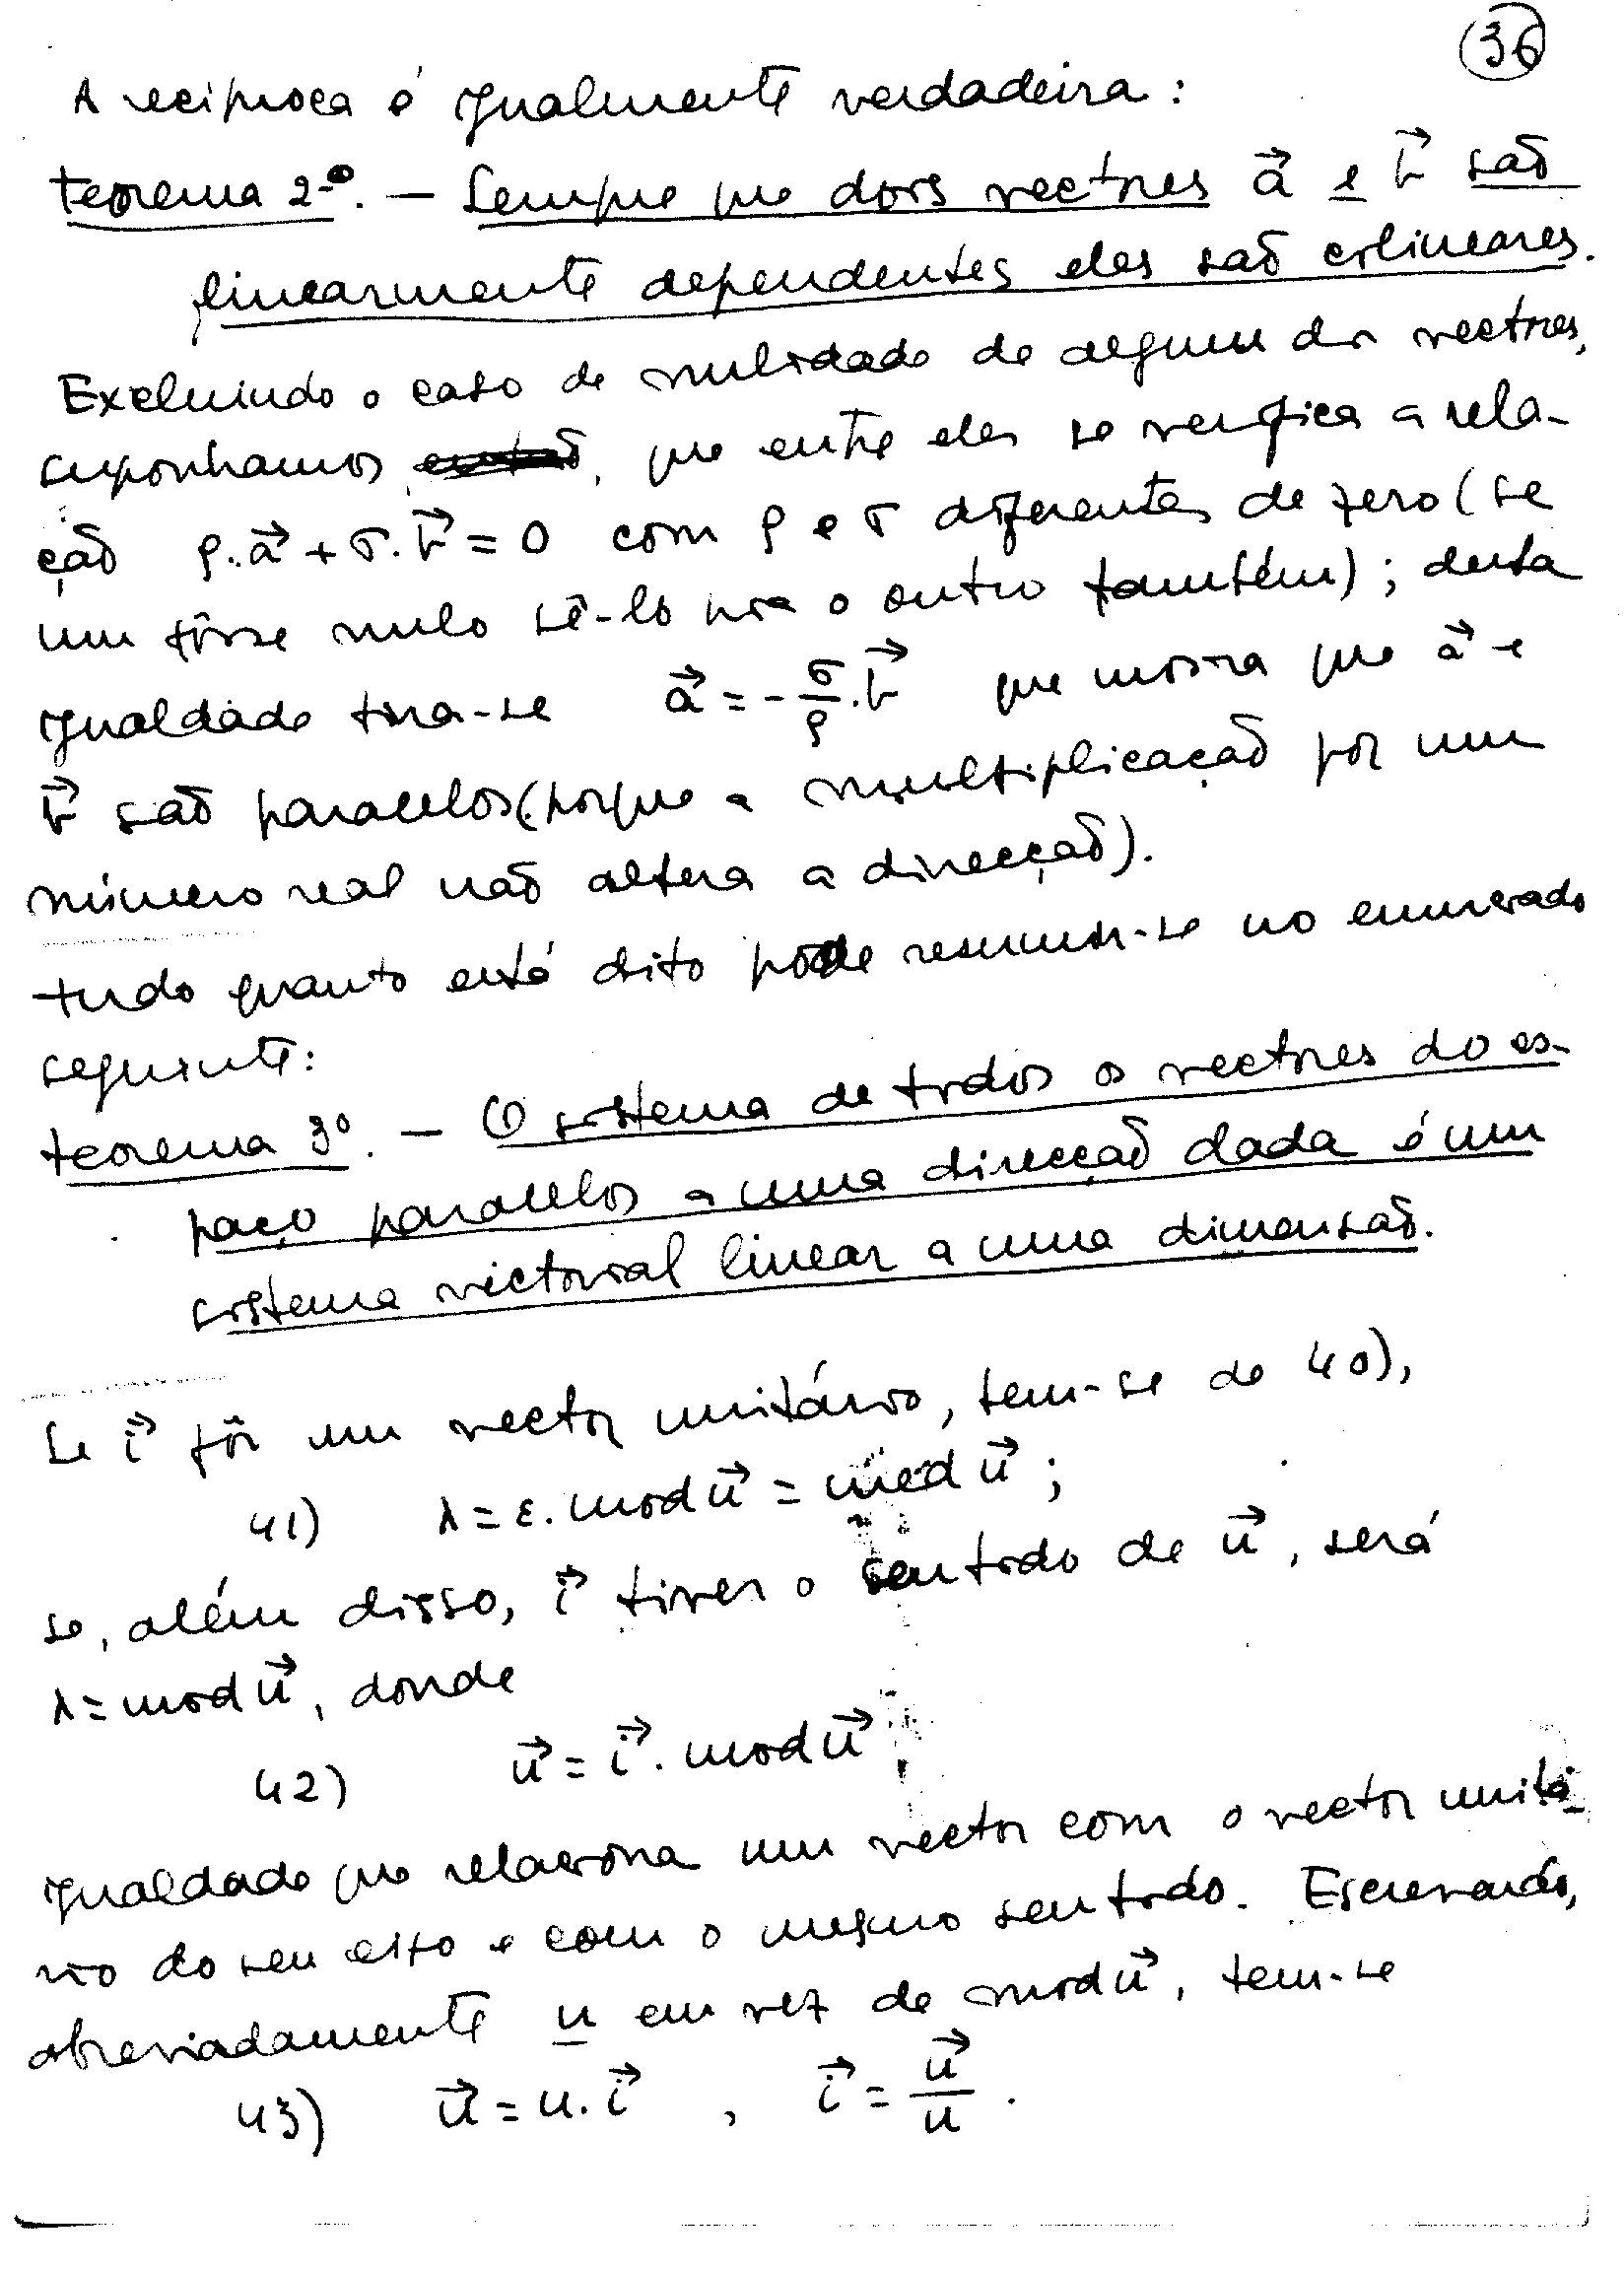 36
A recíproca é igualmente verdadeira:
teorema 2º. — Sempre que dois vectores a⃗ e b⃗ são
linearmente dependentes eles são colineares.
Excluindo o caso de nulidade de algum dos vectores,
suponhamos, que entre eles se verifica a rela-
ção ρ.a⃗ + σ.b⃗ = 0 com ρ e σ diferentes de zero (se
um fôsse nulo sê-lo-ia o outro também); desta
igualdade tira-se a⃗ = -σ/ρ.b⃗ que mostra que a⃗ e
b⃗ são paralelos (porque a multiplicação por um
número real não altera a direcção).
tudo quanto está dito pode resumir-se no enunciado
seguinte:
teorema 3º. — O sistema de todos os vectores do es-
paço paralelos a uma direcção dada é um
sistema vectorial linear a uma dimensão.
Se i⃗ fôr um vector unitário, tem-se de 40),
41) λ = ε. mod u⃗ = med u⃗ ;
se, além disso, i⃗ tiver o sentido de u⃗, será
λ = mod u⃗, donde
42) u⃗ = i⃗. mod u⃗,
igualdade que relaciona um vector com o vector unitá-
rio do seu eixo e com o mesmo sentido. Escrevendo,
abreviadamente u em vez de mod u⃗, tem-se
43) u⃗ = u. i⃗ , i⃗ = u⃗/u .